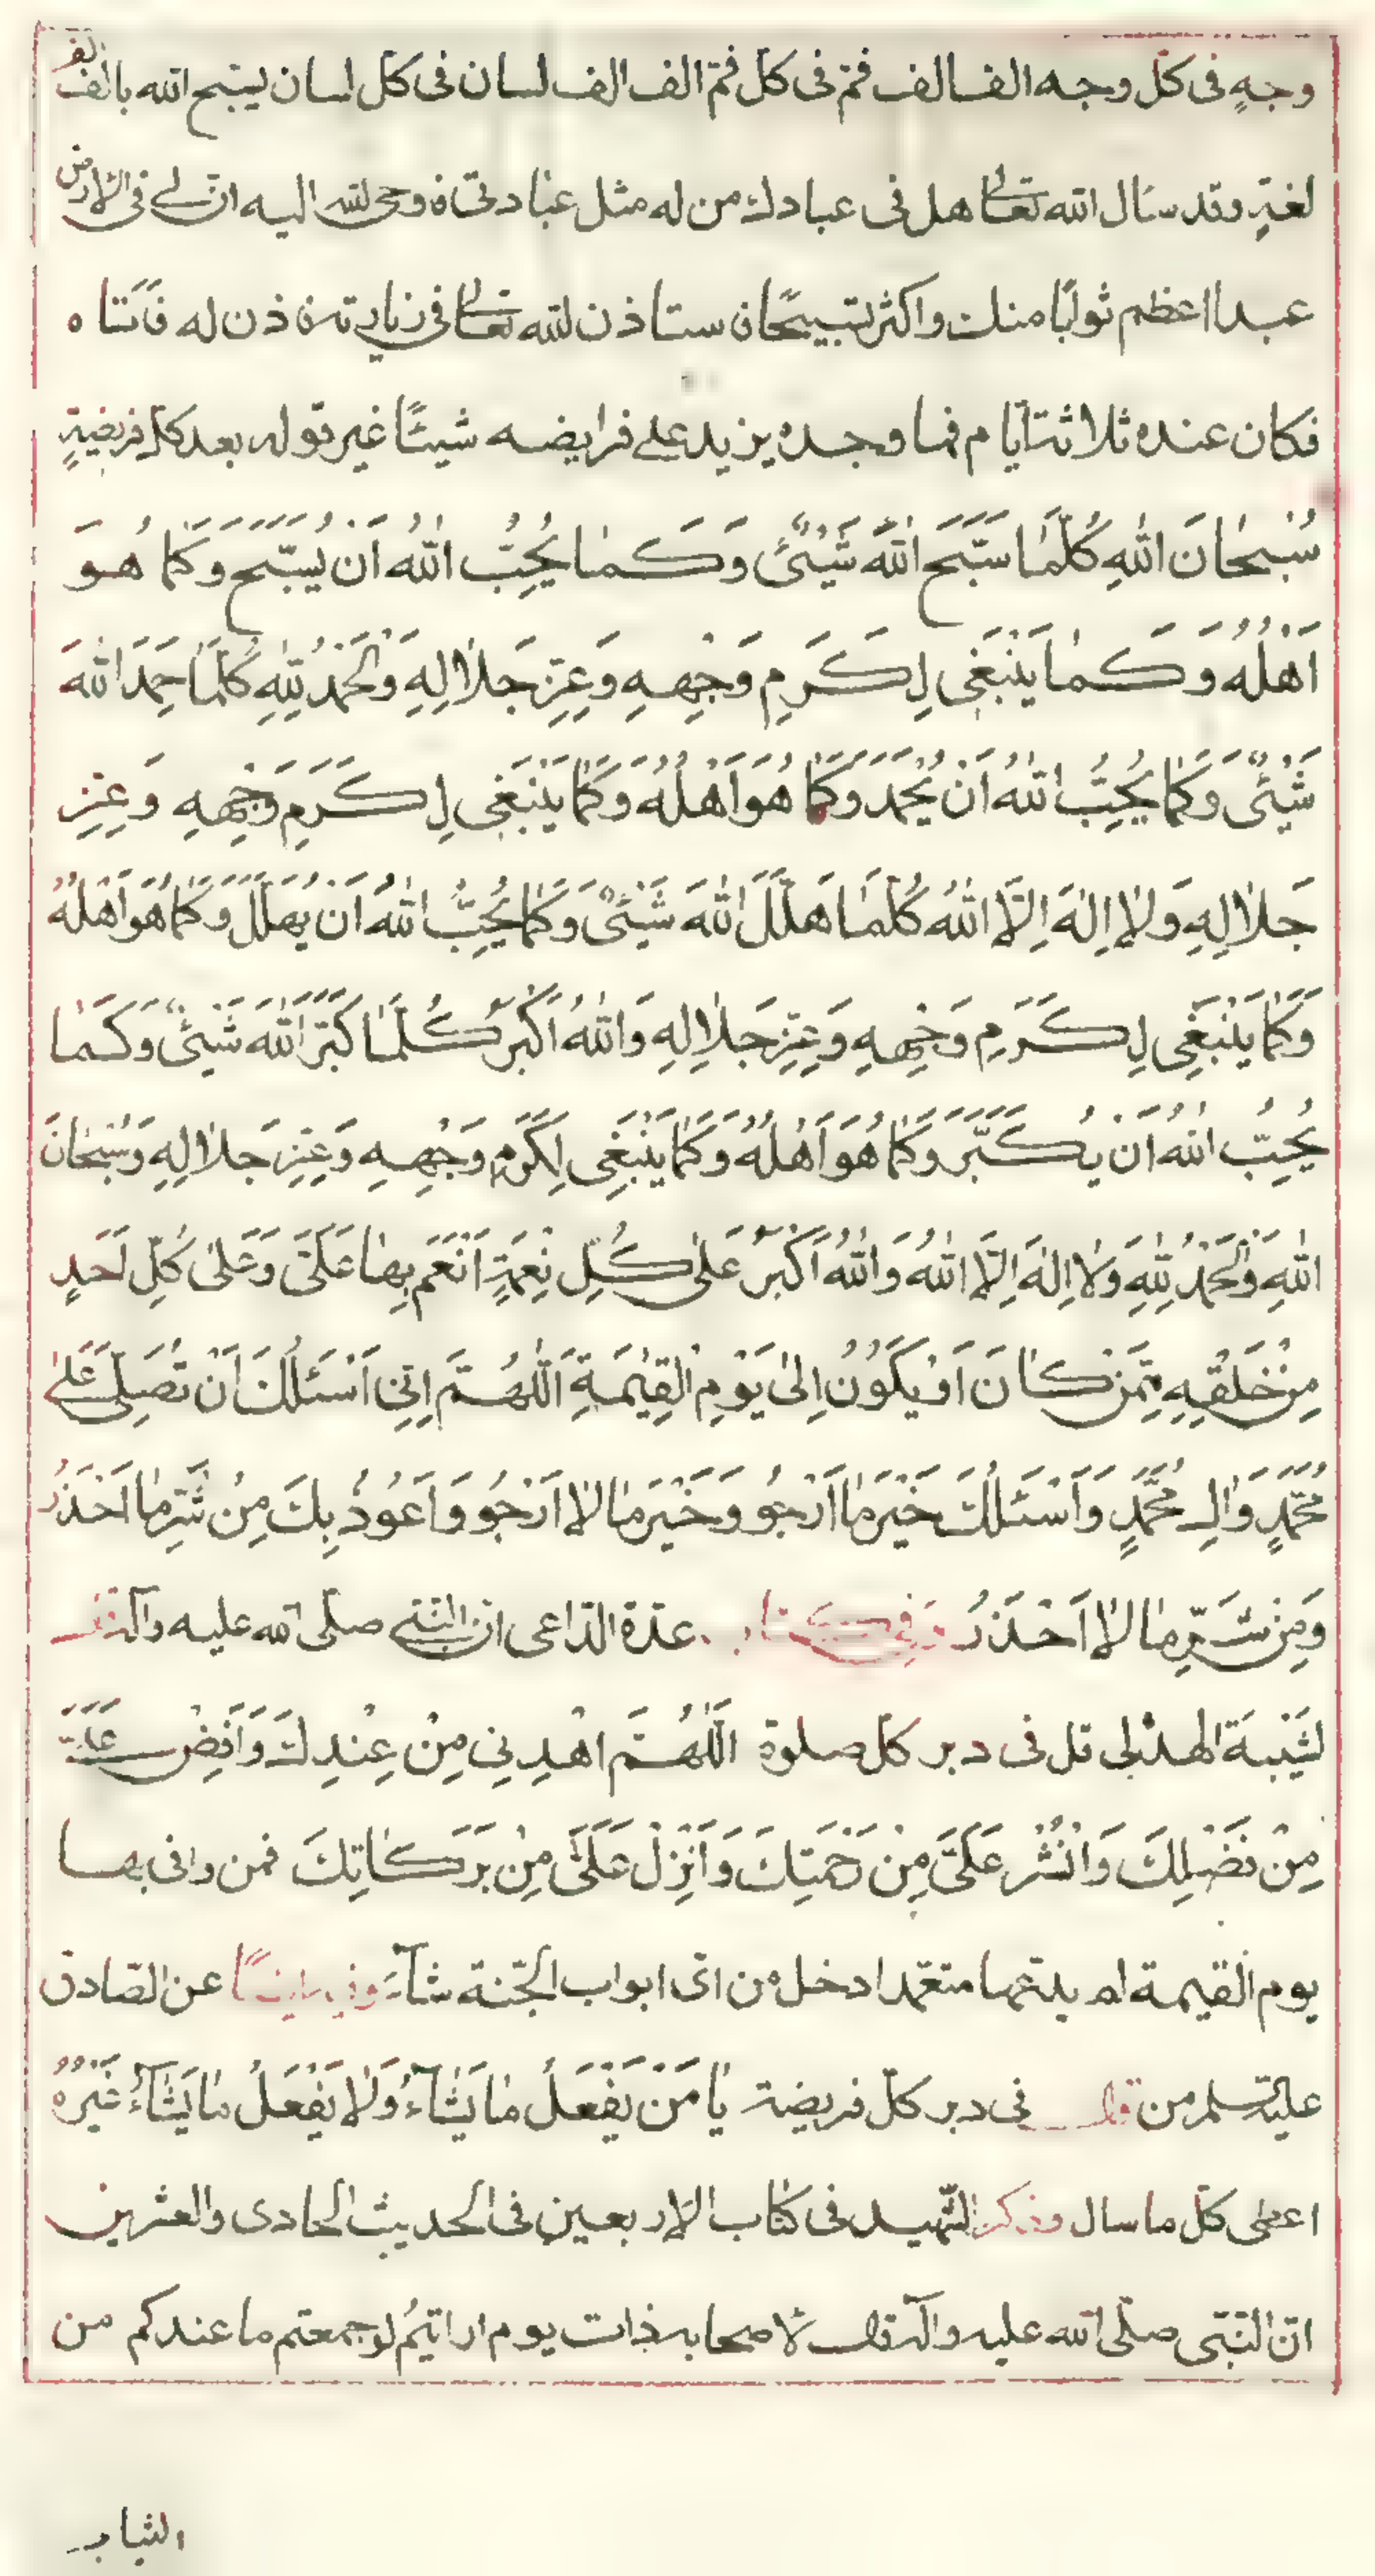 وجهٍ فى كلّ وجه الف الف فمّ فى كلّ فمّ الف الف لسان فى كلّ لسان يسبّح الله بالف الف
لغةٍ وقد سال الله تعالى هل فى عبادك من له مثل عبادتى فاوحى لله اليه انّ لى فى الارض
عبدا اعظم ثوابًا منك واكثر تسبيحًا فاستاذن لله تعالى فى زيارته فاذن له فاتاه
فكان عنده ثلاثة ايّام فما وجده يزيد على فرايضه شيئًا غير قوله بعد كلّ فريضةٍ
سُبْحٰانَ اللهِ كُلَّمٰا سَبَّحَ اللهَ شَيْئٌ وَكَمٰا يُحِبُّ اللهُ اَنْ يُسَبَّحَ وَكَمٰا هُوَ
اَهْلُهُ وَكَمٰا يَنْبَغى لِكَرَمِ وَجْهِهِ وَعِزِّ جَلٰالِهِ وَالْحَمْدُ لِلّٰهِ كُلَّمٰا حَمِدَ اللهَ
شَيْئٌ وَكَمٰا يُحِبُّ اللهُ اَنْ يُحْمَدَ وَكَمٰا هُوَ اَهْلُهُ وَكَمٰا يَنْبَغى لِكَرَمِ وَجْهِهِ وَعِزِّ
جَلٰالِهِ وَلٰا اِلٰهَ اِلَّا اللهُ كُلَّمٰا هَلَّلَ اللهَ شَيْئٌ وَكَمٰا يُحِبُّ اللهُ اَنْ يُهَلَّلَ وَكَمٰا هُوَ اَهْلُهُ
وَكَمٰا يَنْبَغِى لِكَرَمِ وَجْهِهِ وَعِزِّ جَلٰالِهِ وَاللهُ اَكْبَرُ كُلَّمٰا كَبَّرَ اللهَ شَيْئٌ وَكَمٰا
يُحِبُّ اللهُ اَنْ يُكَبَّرَ وَكَمٰا هُوَ اَهْلُهُ وَكَمٰا يَنْبَغِى لِكَرَمِ وَجْهِهِ وَعِزِّ جَلٰالِهِ وَسُبْحٰانَ
اللهِ وَالْحَمْدُ لِلّٰهِ وَلٰا اِلٰهَ اِلَّا اللهُ وَاللهُ اَكْبَرُ عَلٰى كُلِّ نِعْمَةٍ اَنْعَمَ بِهٰا عَلَىَّ وَعَلٰى كُلِّ اَحَدٍ
مِنْ خَلْقِهِ مِمَّنْ كٰانَ اَوْ يَكُونُ اِلٰى يَوْمِ الْقِيٰمَةِ اَللّٰهُمَّ اِنّى اَسْئَلُكَ اَنْ تُصَلِّىَ عَلٰى
مُحَمَّدٍ وَاٰلِ مُحَمَّدٍ وَاَسْئَلُكَ خَيْرَ مٰا اَرْجُو وَخَيْرَ مٰا لٰا اَرْجُو وَاَعُوذُ بِكَ مِنْ شَرِّ مٰا اَحْذَرُ
وَمِنْ شَرِّ مٰا لٰا اَحْذَرُ وَفى كتاب عدّة الدّاعى انّ النّبى صلّى الله عليه واله قال
لشَيْبَة الهذلى قل فى دبر كلّ صلوة اَللّٰهُمَّ اهْدِنى مِنْ عِنْدِكَ وَاَفِضْ عَلَىَّ
مِنْ فَضْلِكَ وَانْشُرْ عَلَىَّ مِنْ رَحْمَتِكَ وَاَنْزِلْ عَلَىَّ مِنْ بَرَكٰاتِكَ فمن وافى بها
يوم القيمة لم يدعها متعمّدا دخل من اىّ ابواب الجّنة شآء وفيه ايضًا عن الصّادق
عليه السّلم من قال فى دبر كلّ فريضة يٰا مَنْ يَفْعَلُ مٰا يَشٰآءُ وَلٰا يَفْعَلُ مٰا يَشٰآءُ غَيْرُهُ
اعطى كلّ ما سال وذكر الشّهيد فى كتاب الاربعين فى الحديث الحادى والعشرين
انّ النّبّى صلّى الله عليه واله قال لاصحابه ذات يوم ارايتم لو جمعتم ما عندكم من
الثياب